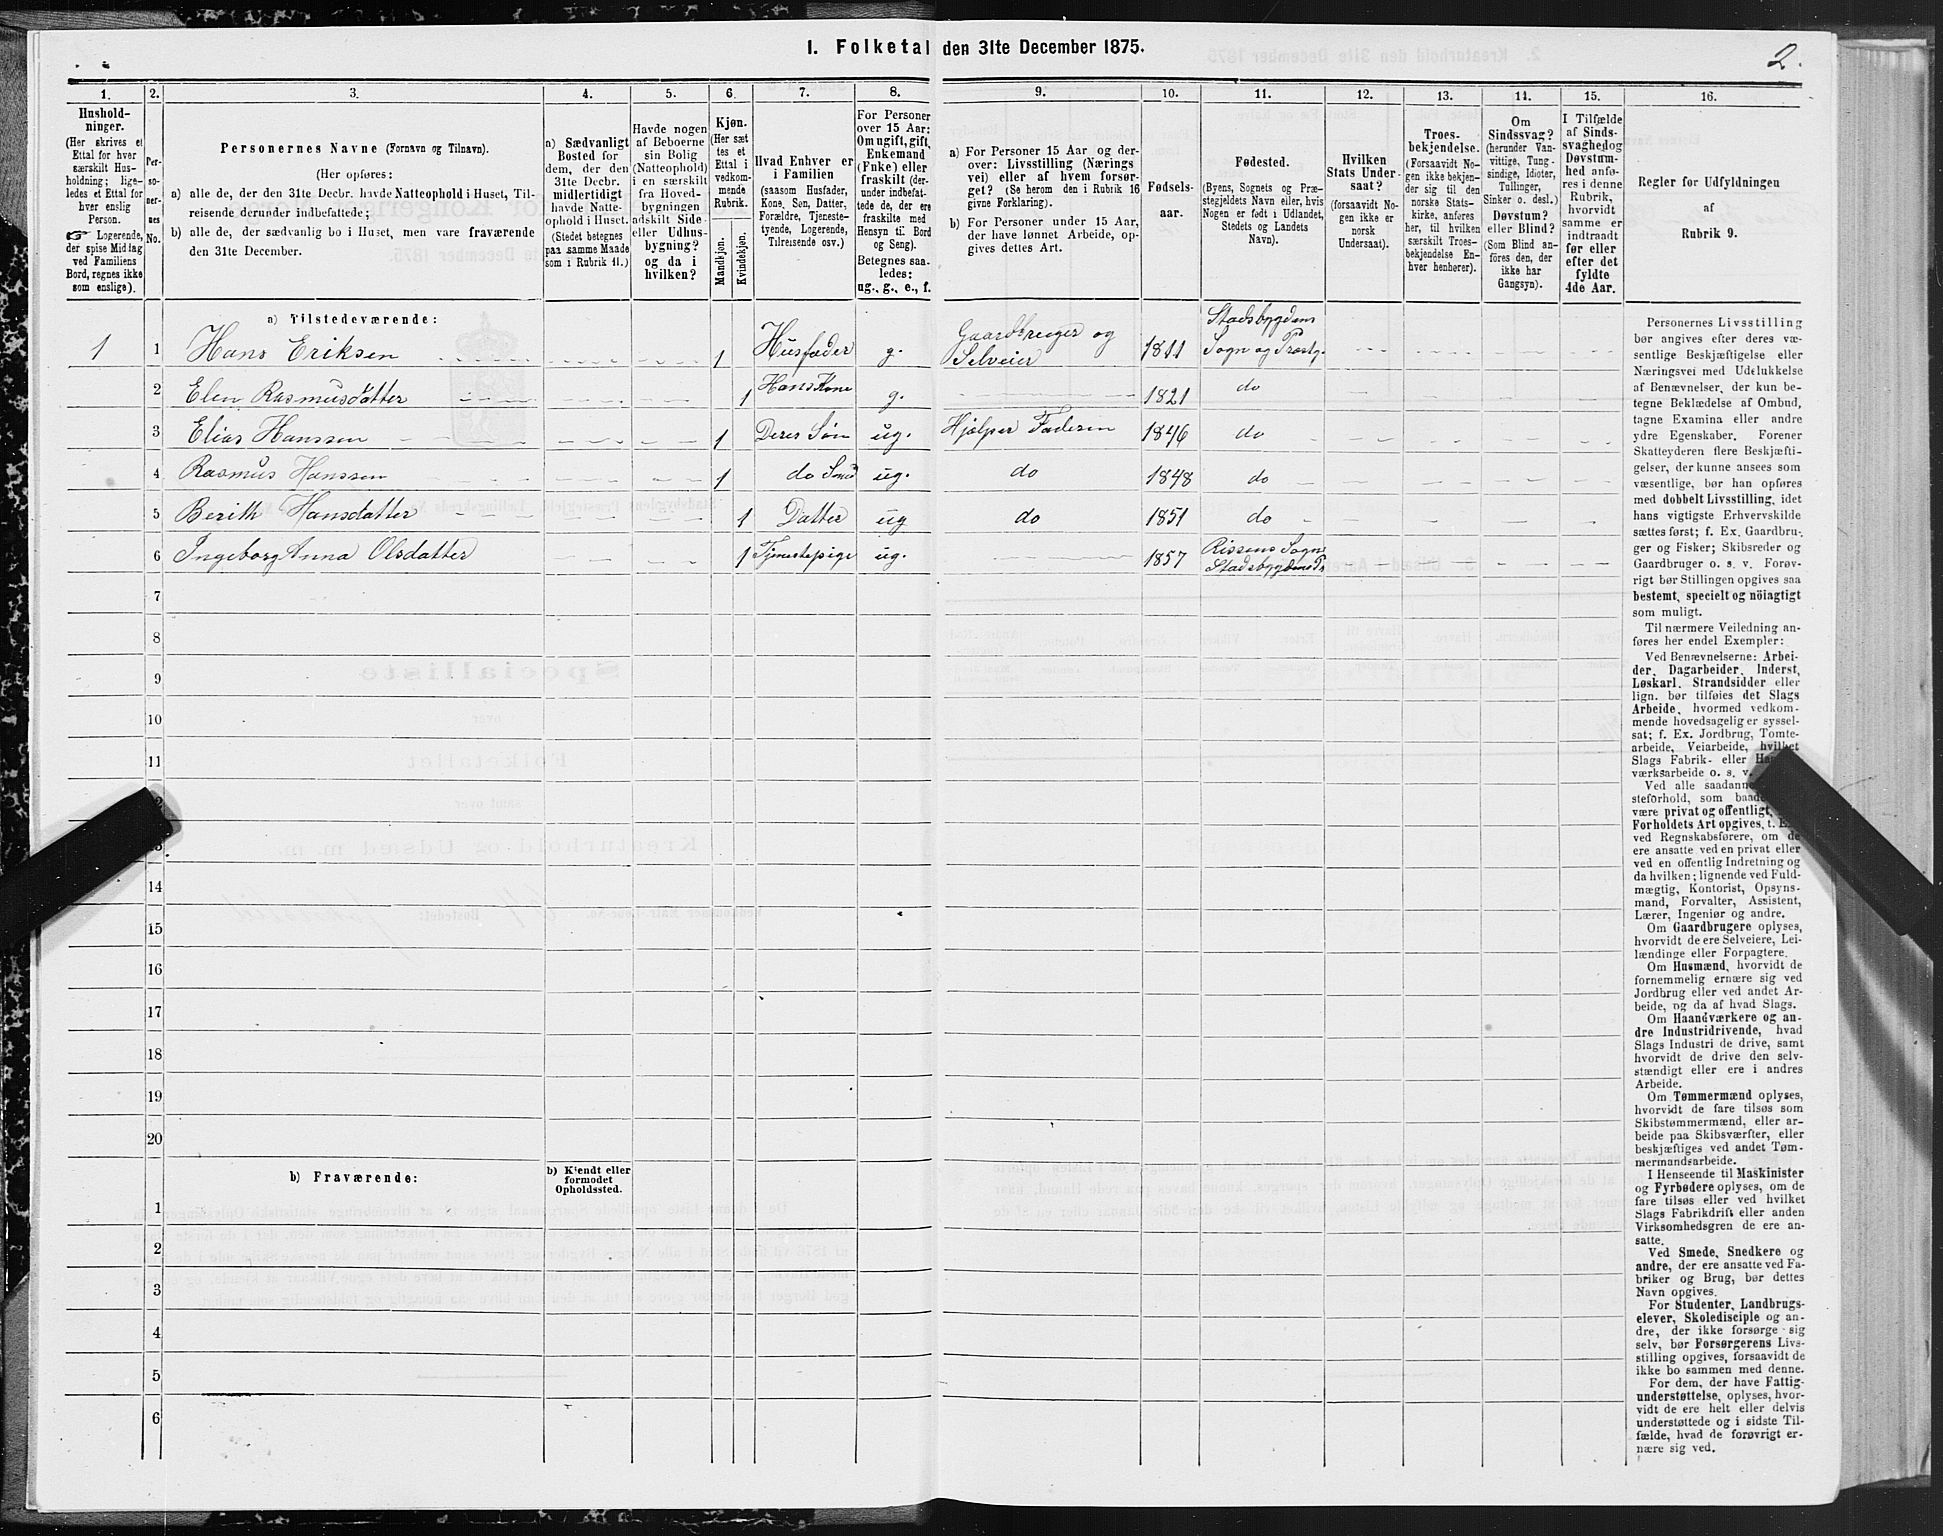 I. Folketal den 31te December 1875.
2.
1. 2. 3. 4. 5. 6. 7. 8. 9. 10. 11. 12. 13. 14. 15. 16.
Hushold-
ninger.
(Her skrives et
Ettal for hver
særskilt Hus-
holdning; lige-
ledes et Ettal for
hver enslig
Person.
☞ Logerende,
der spise Middag
ved Familiens
Bord, regnes ikke
som enslige).
Per-
so-
ner-
nes
No.
Personernes Navne (Fornavn og Tilnavn).
(Her opføres:
a) alle de, der den 31te Decbr. havde Natteophold i Huset, Til-
reisende derunder indbefattede;
b) alle de, der sædvanlig bo i Huset, men vare fraværende
den 31te December.
a) Sædvanligt
Bosted for
dem, der den
31te Decbr.
midlertidigt
havde Natte-
ophold i Huset.
(Stedet betegnes
paa samme Maade
som i Rubrik 11.)
Havde nogen
af Beboerne
sin Bolig
(Natteophold)
i en særskilt
fra Hoved-
bygningen
adskilt Side-
eller Udhus-
bygning?
og da i
hvilken?
Kjøn.
(Her sæt
tes et
Ettal i
vedkom-
mende
Rubrik.
Mandkjøn.
Kvindekjøn.
Hvad Enhver er
i Familien
(saasom Husfader,
Kone, Søn, Datter,
Forældre, Tjeneste-
tyende, Logerende,
Tilreisende osv.)
For Personer
over 15 Aar:
Om ugift, gift,
Enkemand
(Enke) eller
fraskilt (der-
under indbefat-
tede de, der ere
fraskilte med
Hensyn til Bord
og Seng).
Betegnes saa-
ledes:
ug., g., e., f.
a) For Personer 15 Aar og der-
over: Livsstilling (Nærings
vei) eller af hvem forsør-
get? (Se herom den i Rubrik 16
givne Forklaring).
b) For Personer under 15 Aar,
der have lønnet Arbeide, op-
gives dettes Art.
Fødsels-
aar.
Fødested.
(Byens, Sognets og Præ-
stegjeldets Navn eller, hvis
Nogen er født i Udlandet,
Stedets og Landets
Navn).
Hvilken
Stats Under-
saat?
(forsaavidt No-
gen ikke er
norsk
Undersaat).
Troes-
bekjendelse.
(Forsaavidt No-
gen ikke bekjen-
der sig til den
norske Stats-
kirke, anføres
her, til hvilken
særskilt Troes-
bekjendelse En-
hver henhører).
Om
Sindssvag?
(herunder Van-
vittige, Tung-
sindige, Idioter,
Tullinger,
Sinker o. desl.)
Døvstum?
eller Blind?
(Som Blind an-
føres den, der
ikke har
Gangsyn).
I Tilfælde
af Sinds-
svaghed og
Døvstum-
hed anfø-
res i denne
Rubrik,
hvorvidt
samme er
indtraadt
før eller
efter det
fyldte
4de Aar.
Regler for Udfyldningen
af
Rubrik 9.
a) Tilstedeværende:
1 1 Hans Eriksen 1 Husfader g. Gaardbruger og Selveier 1811 Stadsbygdens Sogn og Præstg.
2 Elen Rasmusdatter 1 Hans Kone g. 1821 do
3 Elias Hanssen 1 Deres Søn ug. Hjælper Faderen 1846 do
4 Rasmus Hanssen 1 do ug. do 1848 do
5 Berith Hansdatter 1 Datter ug do 1851 do
6 Ingeborg Anna Olsdatter 1 Tjenestepige ug. 1857 Rissens Sogn
7
8
9
10
11
14
15
16
17
18
19
20
b) Fraværende:
b) Kjendt eller
formodet
Opholdssted.
1
2
3
4
5
6
Personernes Livsstilling
bør angives efter deres væ-
sentlige Beskjæftigelse eller
Næringsvei med Udelukkelse
af Benævnelser, der kun be-
tegne Beklædelse af Ombud,
tagne Examina eller andre
ydre Egenskaber. Forener
Skatteyderen flere Beskjæfti-
gelser, der kunne ansees som
væsentlige, bør han opføres
med dobbelt Livsstilling, idet
hans vigtigste Erhvervskilde
sættes først; f. Ex. Gaardbru-
ger og Fisker; Skibsreder og
Gaardbruger o. s. v. Forøv-
rigt bør Stillingen opgives saa
bestemt, specielt og nöiagtigt
som muligt.
Til nærmere Veiledning an-
føres her endel Exempler:
Ved Benævnelserne: Arbei-
der, Dagarbeider, Inderst,
Løskarl, Strandsidder eller
lign. bør tilføies det Slags
Arbeide, hvormed vedkom-
mende hovedsagelig er syssel-
sat; f. Ex. Jordbrug, Tomte-
arbeide, Veiarbeide, hvilket
Slags Fabrik- eller
værksarbeide o. s. v.
Ved alle saadanne
steforhold, som
være privat og offentligt,
Forholdets Art opgives, t.
ved Regnskabsførere, om de
ere ansatte ved en privat eller
ved en offentlig Indretning og
da hvilken; lignende ved Fuld-
mægtig, Kontorist, Opsyns-
mand, Forvalter, Assistent,
Lærer, Ingeniør og andre.
Om Gaardbrugere oplyses,
hvorvidt de ere Selveiere, Lei-
lændinge eller Forpagtere.
Om Husmænd, hvorvidt de
fornemmelig ernære sig ved
Jordbrug eller ved andet Ar-
beide, og da af hvad Slags.
Om Haandværkere og an-
dre Industridrivende, hvad
Slags Industri de drive, samt
hvorvidt de drive den selv-
stændigt eller ere i andres
Arbeide.
Om Tømmermænd oplyses,
hvorvidt de fare tilsøs som
Skibstømmermænd, eller ar-
beide paa Skibsværfter, eller
beskjæftiges ved andet Tøm-
mermandsarbeide.
I Henseende til Maskinister
og Fyrbødere oplyses, om de
fare tilsøs eller ved hvilket
Slags Fabrikdrift eller anden
Virksomhedsgren de ere an-
satte.
Ved Smede, Snedkere og
andre, der ere ansatte ved Fa-
briker og Brug, bør dettes
Navn opgives.
For Studenter, Landbrugs-
elever, Skoledisciple og an-
dre, der ikke forsørge sig
selv, bør Forsørgerens Livs-
stilling opgives, forsaavidt de
ikke bo sammen med denne.
For dem, der have Fattig-
understøttelse, oplyses, hvor-
vidt de ere helt eller delvis
understøttede og i sidste Til-
fælde, hvad de forøvrigt er-
nære sig ved.